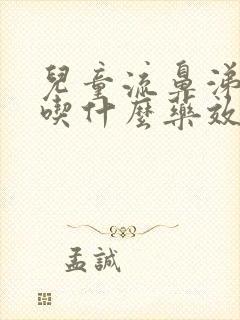 兒童流鼻涕
喫什麼藥效
孟誠